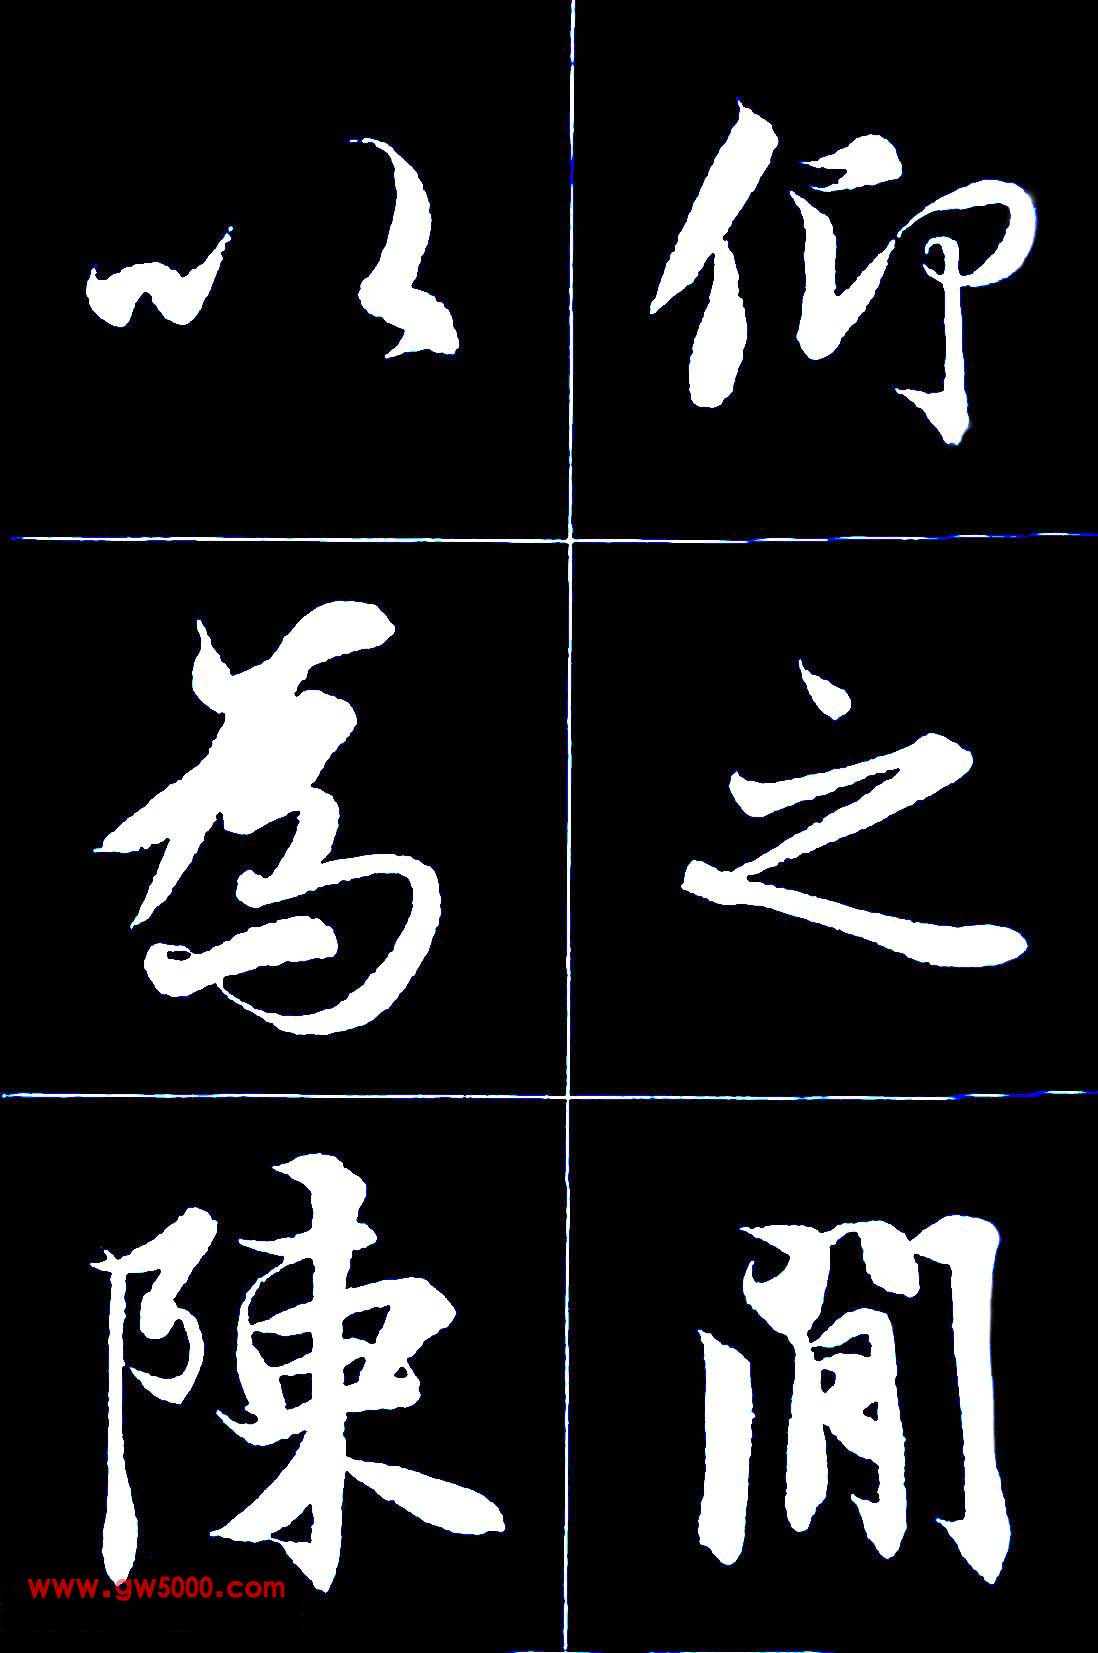 仰之閒
以為陳
www.gw5000.com